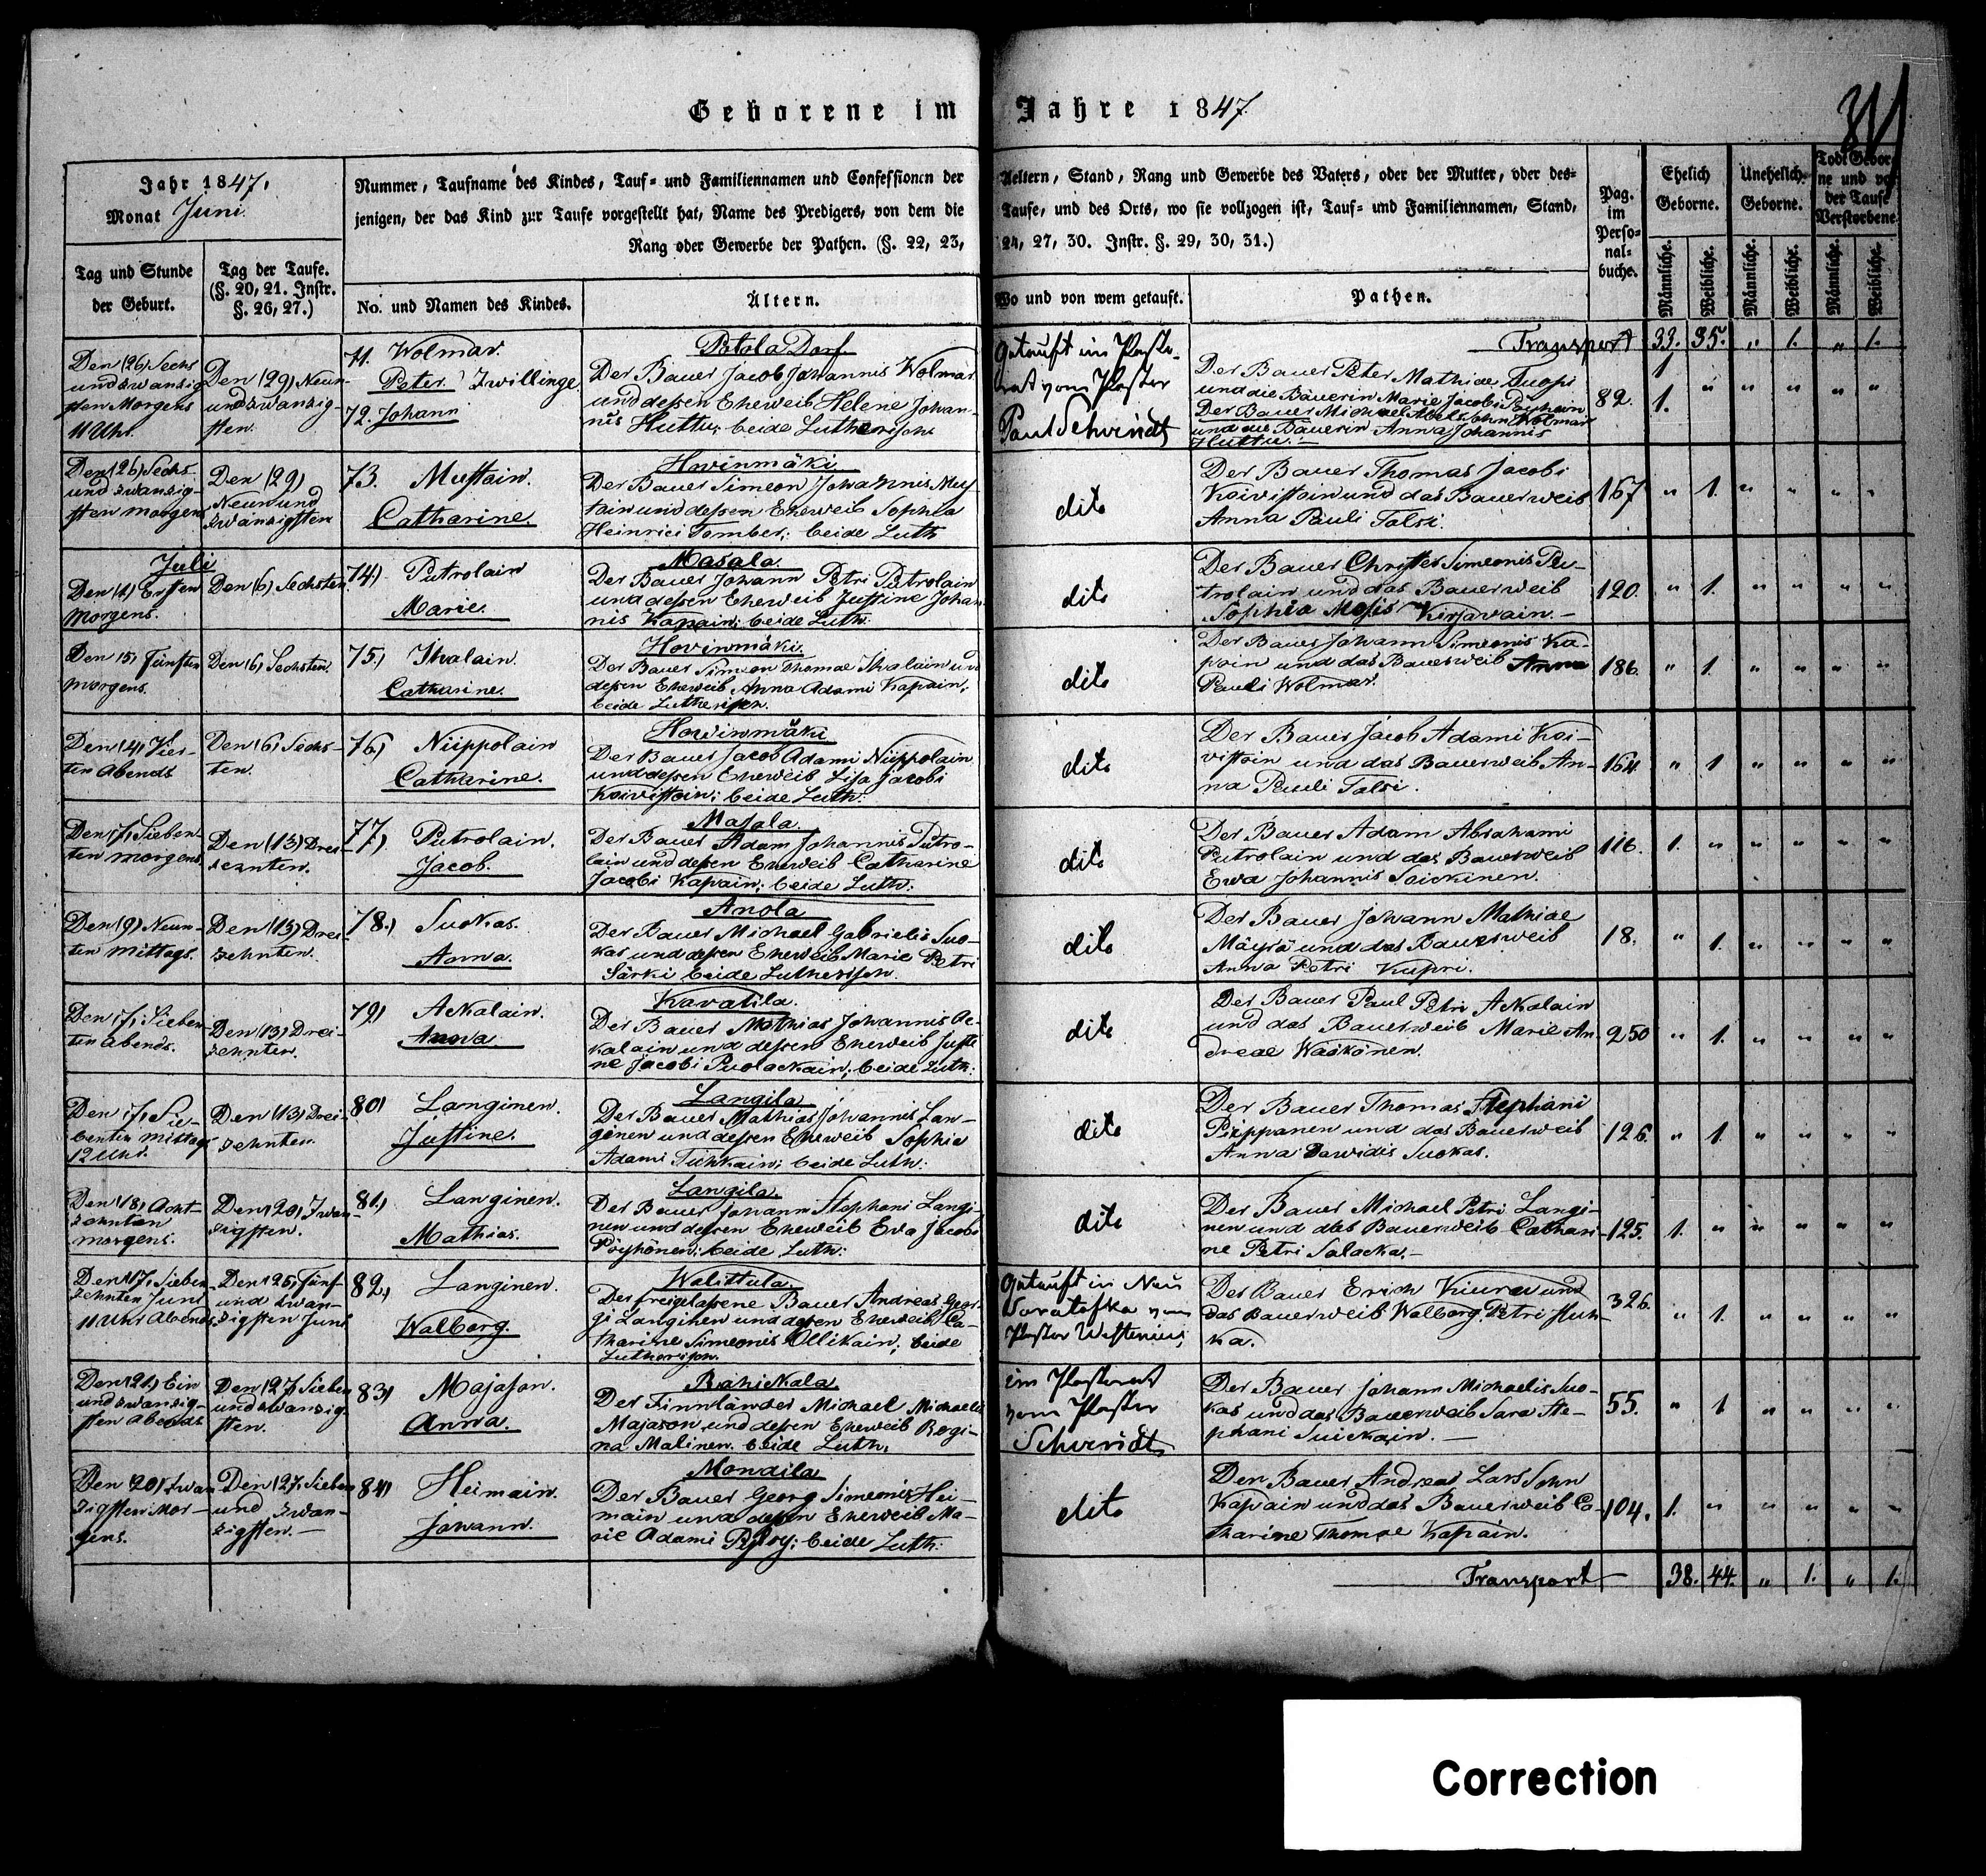 Geborene im Jahre 1847.
Jahr 1847.
Monat Juni.
Nummer, Taufname des Kindes, Tauf- und Familiennamen und Confessionen der Aeltern, Stand, Rang und Gewerbe des Vaters, oder der Mutter, oder des-
jenigen, der das Kind zur Taufe vorgestellt hat, Name des Predigers, von dem die Taufe, und des Orts, wo sie vollzogen ist, Tauf- und Familiennamen, Stand,
Rang oder Gewerbe der Pathen. (§. 22, 23, 24, 27, 30. Instr. §. 29, 30, 31.)
Pag. im Perso-nal-buche.
Ehelich Geborne.
Unehelich Geborne.
Todt Gebor-ne und vor der Taufe Verstorbene
Tag und Stunde der Geburt.
Tag der Taufe. (§. 20, 21. Instr. §. 26, 27.)
No. und Namen des Kindes.
Ältern.
Wo und von wem getauft.
Pathen.
Männliche. Weibliche. Männliche. Weibliche. Männliche. Weibliche.
Transport 33. 35. „ 1. „ 1.
Den (26) Sechs
und zwanzig
sten Morgens
11 Uhr.
Den (29) Neun-
und zwanzig-
sten.
71. Wolmar.
Peter. Zwillinge
72. Johann
Potola Dorf.
Der Bauer Jacob Johannis Wolmar
und dessen Eheweib Helene Johan-
nis Huttu; beide Lutherisch
Getauft im Pasto-
rat vom Pastor
Paul Schvindt
Der Bauer Peter Mathiae Tuopi
und die Bäuerin Marie Jacobi
Der Bauer Michael Abels Sohn Wolmar
und die Bäuerin Anna Johannis
Huttu.
82. 1 1. „ „ „ „ „
Den (26) Sechs-
und zwanzig-
sten morgens
Den (29)
Neun und
zwanzigsten
73. Mustain.
Catharine.
Howinmäki
Der Bauer Simeon Johannis Mus-
tain und dessen Eheweib Sophia
Heinrici Tomber; beide Luth
dito
Der Bauer Thomas Jacobi
Koivistain und das Bauerweib
Anna Pauli Talsi.
167 „ 1. „ „ „ „
Juli
Den (1) Ersten
Morgens.
Den (6) Sechsten
74.) Putrolain
Marie.
Masala.
Der Bauer Johann Petri Putrolain
und dessen Eheweib Justine Johan
nis Kapain; beide Luth:
dito
Der Bauer Christer Simeonis Pu-
trolain und das Bauerweib
Sophia Mosis Kirjavain.
120. „ 1. „ „ „ „
Den (5) Fünften
morgens.
Den (6) Sechsten.
75.) Ihalain.
Catharine.
Hovinmäki.
Der Bauer Simeon Thomae Ihalain und
dessen Eheweib Anna Adami Kapain,
beide Lutherisch.
dito
Der Bauer Johann Simeonis Ka-
pain und das Bauerweib Anna
Pauli Wolmar.
186. „ 1. „ „ „ „
Den (4) Vier-
ten Abends
Den (6) Sechs-
ten.
76.) Niippolain
Catharine.
Howinmäki
Der Bauer Jacob Adami Niippolain
und dessen Eheweib Lisa Jacobi
Koivistoin; beide Luth:
dito
Der Bauer Jacob Adami Koi-
vistoin und das Bauerweib An-
na Pauli Talsi.
164. „ 1 „ „ „ „
Den (7) Sieben-
ten morgens
Den (13) Drei-
zehnten.
77.) Putrolain.
Jacob.
Masala.
Der Bauer Adam Johannis Putro-
lain und dessen Eheweib Catharine
Jacobi Kapain; beide Luth:
dito
Der Bauer Adam Abrahami
Putrolain und das Bauerweib
Ewa Johannis Soickinen.
116. 1. „ „ „ „ „
Den (9) Neun-
ten Mittags.
Den (13) Drei-
zehnten.
78.) Suokas
Anna.
Anola
Der Bauer Michael Gabrielis Suo-
kas und dessen Eheweib Marie Petri
Särki beide Lutherisch.
dito
Der Bauer Johann Mathiae
Mäyrä und das Bauerweib
Anna Petri Kupri.
18. „ 1. „ „ „ „
Den (7) Sieben-
ten Abends.
Den (13) Drei-
zehnten.
79.) Ackalain.
Anna.
Kavatila.
Der Bauer Mathias Johannis Ac-
kalain und dessen Eheweib Justi
ne Jacobi Puolackain; beide Luth:
dito
Der Bauer Paul Petri Ackalain
und das Bauerweib Marie An-
dreae Waskonen.
250 „ 1. „ „ „ „
Den (7) Sie-
benten Mittags
12 Uhr.
Den (13) Drei-
zehnten.
80) Langinen.
Justine.
Langila
Der Bauer Mathias Johannis Lan-
ginen und dessen Eheweib Sophia
Adami Tiihkain; beide Luth:
dito
Der Bauer Thomas Stephani
Piippanen und das Bauerweib
Anna Dawidis Suokas.
126. „ 1. „ „ „ „
Den (18) Acht-
zehnten
morgens.
Den (20) Zwan-
zigsten.
81.) Langinen.
Mathias.
Langila.
Der Bauer Johann Stephani Langi-
nen und dessen Eheweib Eva Jacobi
Pöyhönen; beide Luth:
dito
Der Bauer Michael Petri Langi-
nen und das Bauerweib Cathari-
ne Petri Salacka.
125. 1. „ „ „ „ „
Den (17) Sieben
zehnten Juni
11 Uhr Abends
Den (25) Fünf
und zwan-
zigsten Juni
82.) Langinen.
Walborg.
Walittula.
Der freigelassene Bauer Andreas Geor-
gi Langinen und dessen Eheweib Ca-
tharine Simeonis Ollikain; beide
Lutherisch.
Getauft in Neu
Saratofka vom
Pastor
Der Bauer Erich Kiuru und
das Bauerweib Walborg Petri Huh-
ka.
326. „ 1. „ „ „ „
Den (21.) Ein
und zwanzig-
sten Abends
Den (27) Sieben
und zwanzig-
sten.
83) Majason.
Anna.
Rahickala
Der Finnländer Michael Michaelis
Majason und dessen Eheweib Regi-
na Malinen. beide Luth.
im Pastorat
vom Pastor
Schvindt
Der Bauer Johann Michaelis Suo-
kas und das Bauerweib Sara Ste-
phani Suickain.
55. „ 1 „ „ „ „
Den (20) Zwan
zigsten Mor-
gens.
Den (27) Sieben
und zwan-
zigsten.
84) Heimain.
Johann.
Mondila
Der Bauer Georg Simeonis Hei-
main und dessen Eheweib Ma-
rie Adami; beide Luth:
dito
Der Bauer Andreas Lars Sohn
Kapain und das Bauerweib Ca-
tharine Thomae Kapain.
104. 1. „ „ „ „ „
Transport 38. 44. „ 1. „ 1.
Correction